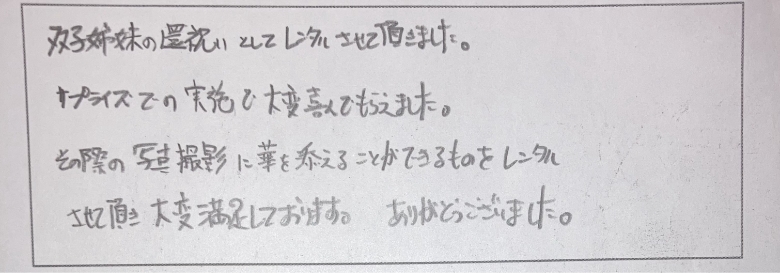 双子姉妹の還祝いとしてレンタルさせて頂きました。
サプライズでの実施で大変喜んでもらえました。
その際の写真撮影に華を添えることができるものをレンタル
させて頂き大変満足しております。 ありがとうございました。